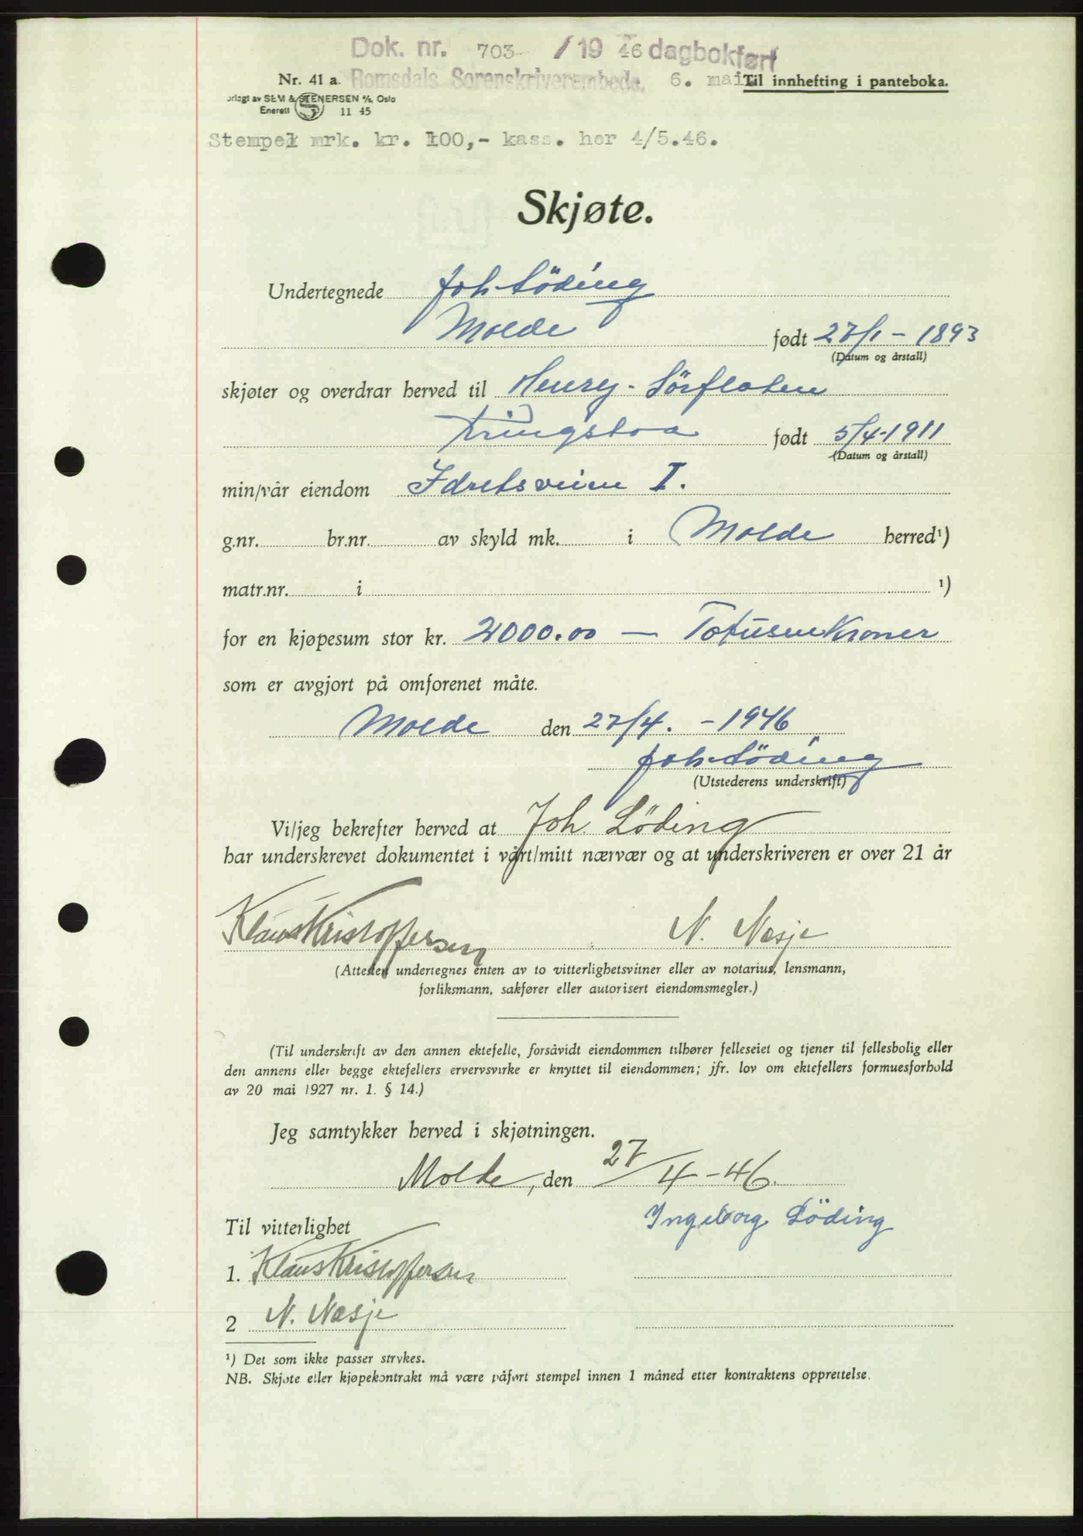 Dok. nr. 703 / 19 46 dagbokført
Nr. 41 a. Romsdals Sorenskriverembede. 6. mai Til innhefting i panteboka.
orlagt av SEM & STENERSEN A/S, Oslo
Enerett S 11 45
Stempel mrk. kr. 100,- kass. her 4/5.46.
Skjøte.
Undertegnede Joh Löding
Molde født 27/1 - 1893
(Datum og årstall)
skjøter og overdrar herved til Henry Sörflaten
Kringstoa født 5/4-1911
(Datum og årstall)
min/vår eiendom Idretsveien I.
g.nr. br.nr. av skyld mk. i Molde herred¹)
matr.nr. i ¹)
for en kjøpesum stor kr. 2000.00 — Totusen Kroner
som er avgjort på omforenet måte.
Molde den 27/4. - 1946
Joh Löding
(Utstederens underskrift)
Vi/jeg bekrefter herved at Joh Löding
har underskrevet dokumentet i vårt/mitt nærvær og at underskriveren er over 21 år
Klaus Kristoffersen N. Næsje
(Attesten undertegnes enten av to vitterlighetsvitner eller av notarius, lensmann,
forliksmann, sakfører eller autorisert eiendomsmegler.)
(Til underskrift av den annen ektefelle, forsåvidt eiendommen tilhører felleseiet og tjener til fellesbolig eller
den annens eller begge ektefellers ervervsvirke er knyttet til eiendommen; jfr. lov om ektefellers formuesforhold
av 20 mai 1927 nr. 1. § 14.)
Jeg samtykker herved i skjøtningen.
Molde, den 27/4-46.
Til vitterlighet Ingeborg Löding
1. Klaus Kristoffersen
2 N. Næsje
¹) Det som ikke passer strykes.
NB. Skjøte eller kjøpekontrakt må være påført stempel innen 1 måned etter kontraktens opprettelse.